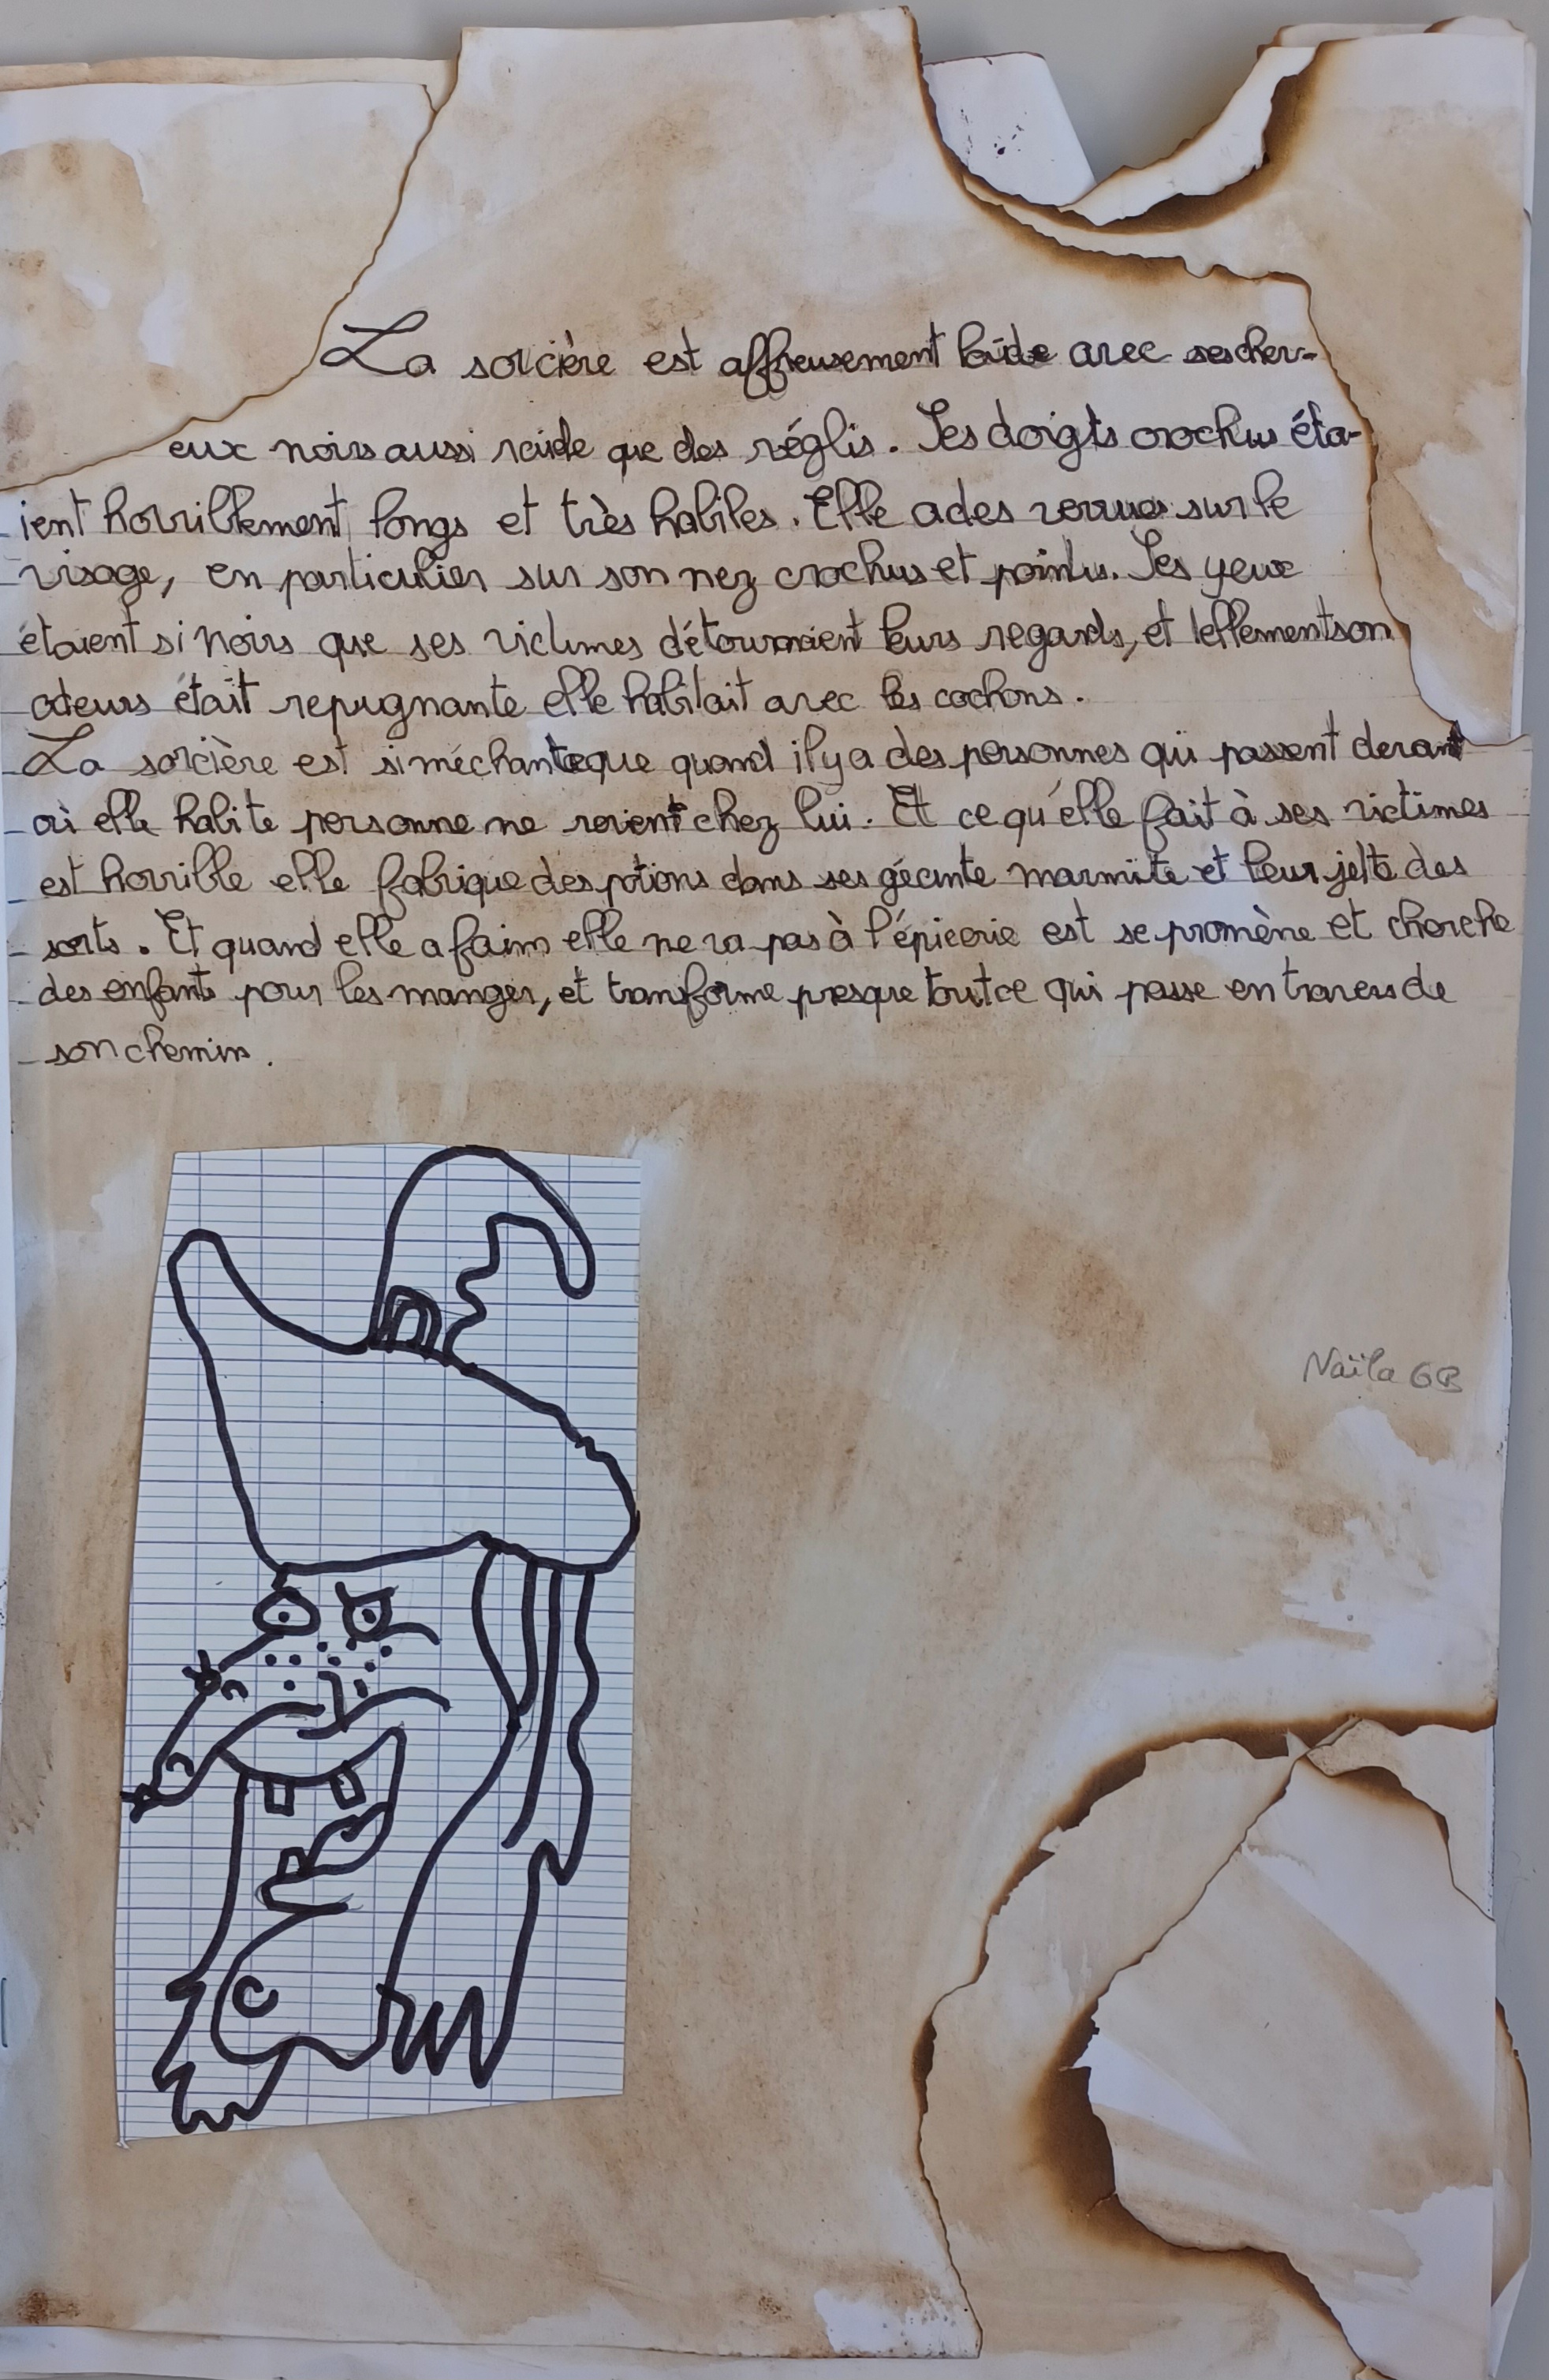 La sorcière est affreusement laide avec ses cher-
eux noirs aussi raide que des réglis. Ses doigts crochus éta-
ient horriblement longs et très habiles. Elle a des verrues sur le
visage, en particulier sur son nez crochus et pointu. Ses yeux
étaient si noirs que ses victimes détournaient leurs regards, et tellement son
odeurs était repugnante elle habitait avec les cochons.
La sorcière est si méchante que quand il y a des personnes qui passent devant
où elle habite personne ne revient chez lui. Et ce qu'elle fait à ses victimes
est horrible elle fabrique des potions dans ses géante marmite et leur jette des
sorts. Et quand elle a faim elle ne va pas à l'épicerie est se promène et cherche
des enfants pour les manger, et transforme presque tout ce qui passe en travers de
son chemin.
Naïla 6B